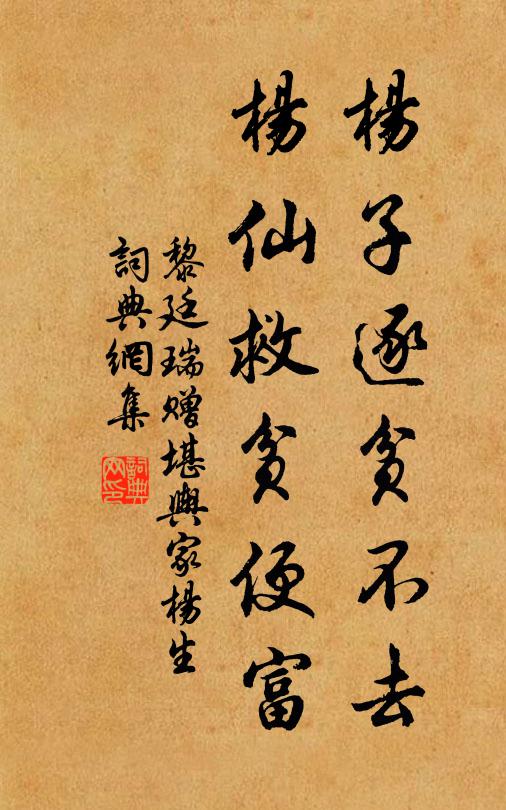 楊子逐貧不去
楊仙救貧便富
黎廷瑞贈堪輿家楊生
詞典網集
詞典網印